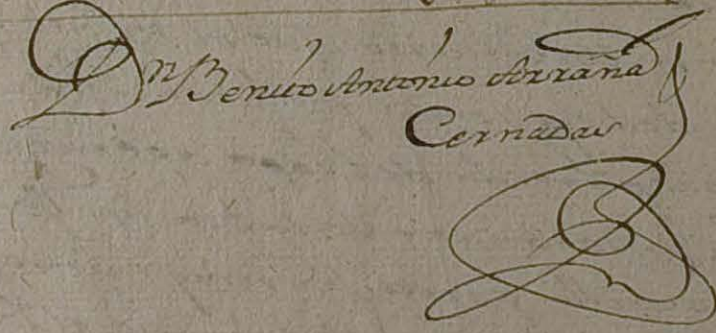 Dn Benito Antonio Arrana
Cernadas